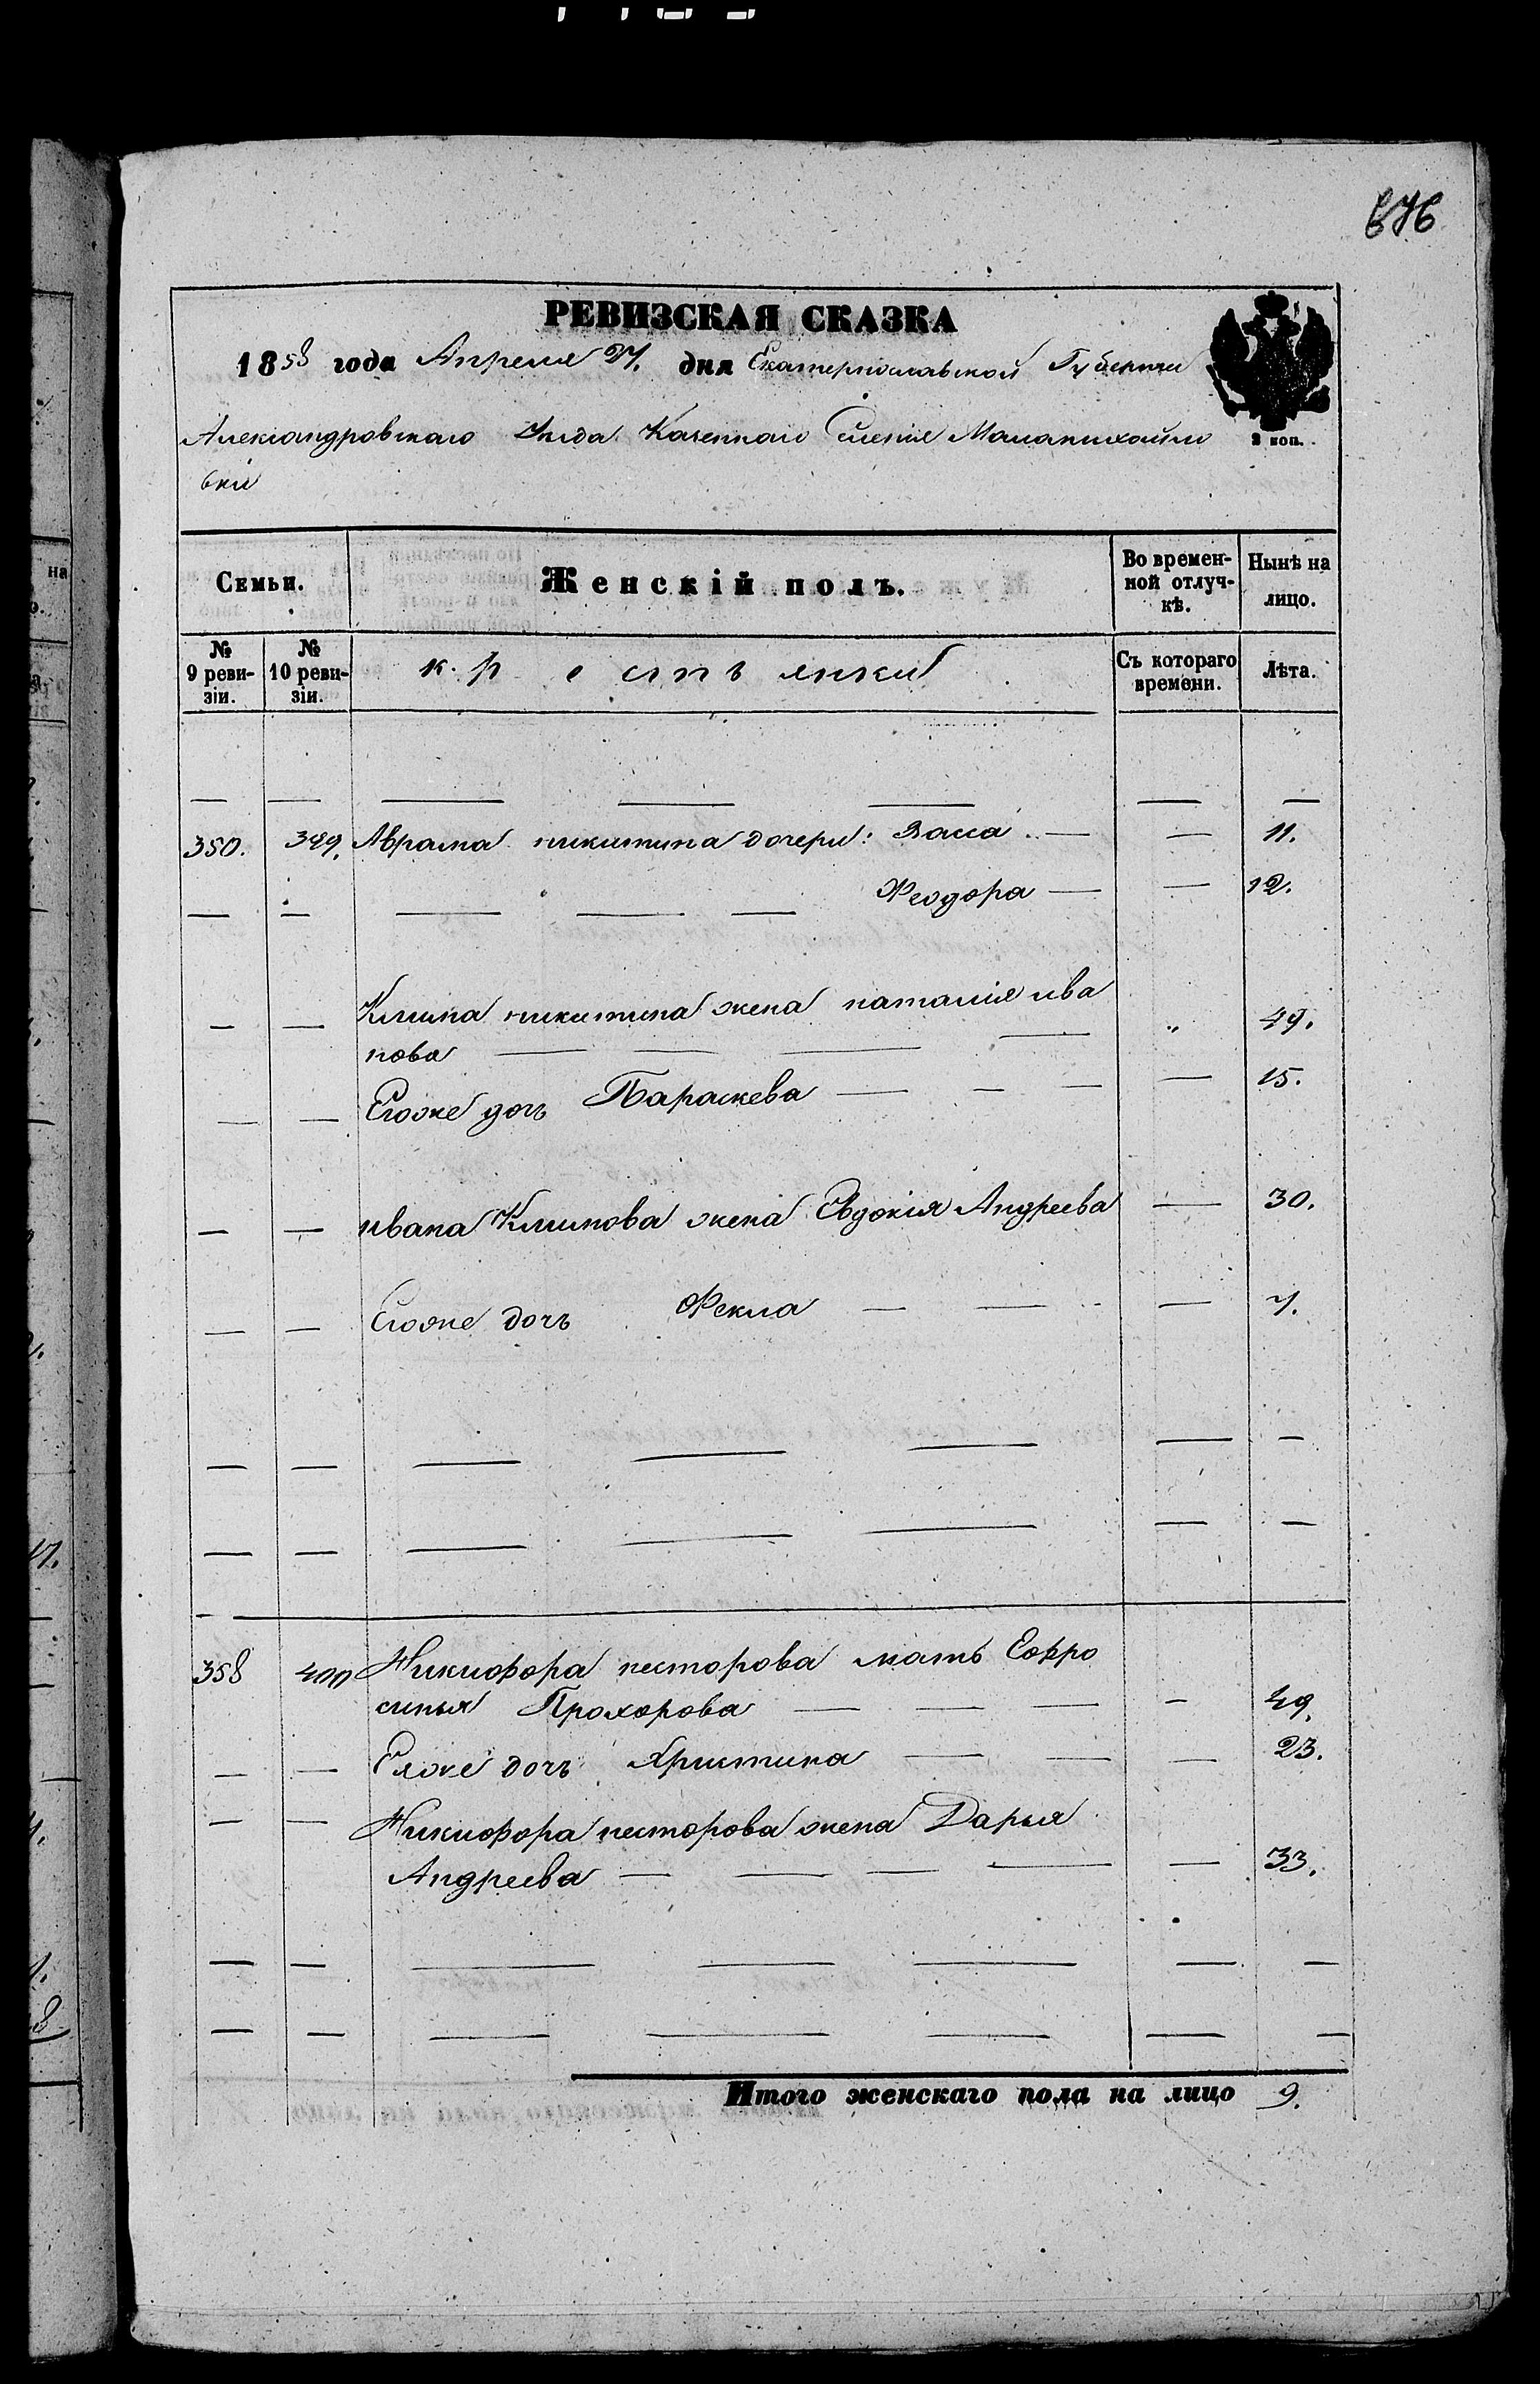 676
РЕВИЗСКАЯ СКАЗКА
1858 года Апреля 27. дня Екатеринославской Губерніи
Александровскаго Уезда Казеннаго Селенія Маламихайло
вки
2 коп.
Семьи.
Женскій полъ.
Во времен-
ной отлуч-
кѣ.
Нынѣ на
лицо.
№
9 реви-
зіи.
№
10 реви-
зіи.
крестьянки
Съ котораго
времени.
Лѣта.
350. 399. Аврама никитина дочери: Васса — — 11.
Феодора — — 12.
— — Клима никитина жена наталия ива
нова — — — — „ 49.
— — Егоже дочь Параскева — — — — 15.
— — ивана Климова жена Евдокия Андреева — 30.
— — Егоже дочь Фекла — — — 7.
358 400 Никифора несторова мать Еофро
синья Прохорова — — — — 49.
— — Еяже дочь Христина — — — 23.
— — Никифора несторова жена Дарья
Андреева — — — — — 33.
Итого женскаго пола на лицо 9.